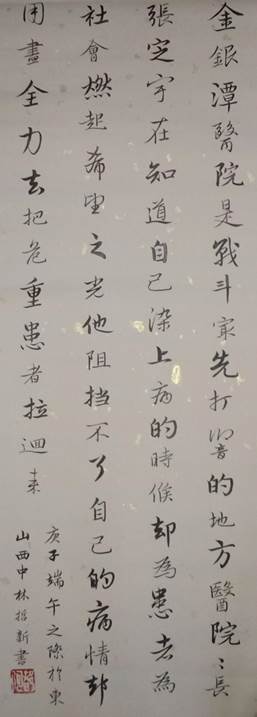 金銀潭醫院是戰斗最先打響的地方醫院〻長
張定宇在知道自己染上病的時候却為患者為
社會燃起希望之光他阻挡不了自己的病情却
用盡全力去把危重患者拉迴来
庚子端午之際於東
山西中林招新書